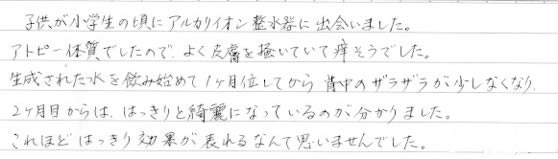 子供が小学生の頃にアルカリイオン整水器に出会いました。
アトピー体質でしたので、よく皮膚を掻いていて痒そうでした。
生成された水を飲み始めて1ヶ月位してから背中のザラザラが少しなくなり、
2ヶ月目からは、はっきりと綺麗になっているのが分かりました。
これほどはっきり効果が表れるなんて思いませんでした。